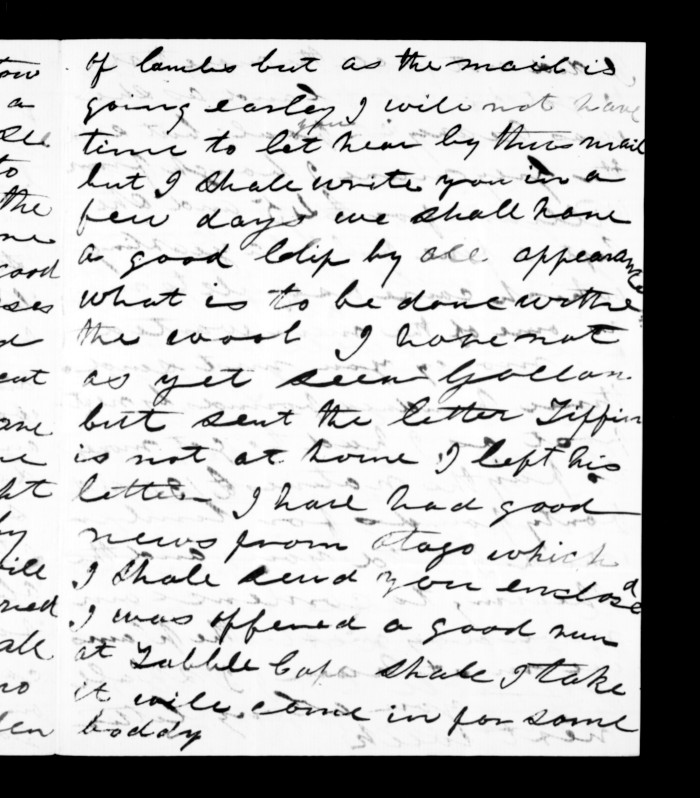 of lambs but as the mail is
going earley I will not have
time to let hear by this mail
you
but I shall write you in a
few days we shall have
a good Clip by all appearance
what is to be done withe
the wool I have not
as yet seen Gollan
but sent the letter Tiffin
is not at home I left his
letter I have had good
news from Otago which
I shall send you enclosed
I was offered a good run
at Tabble Cape shall I take
it will come in for some
boddy